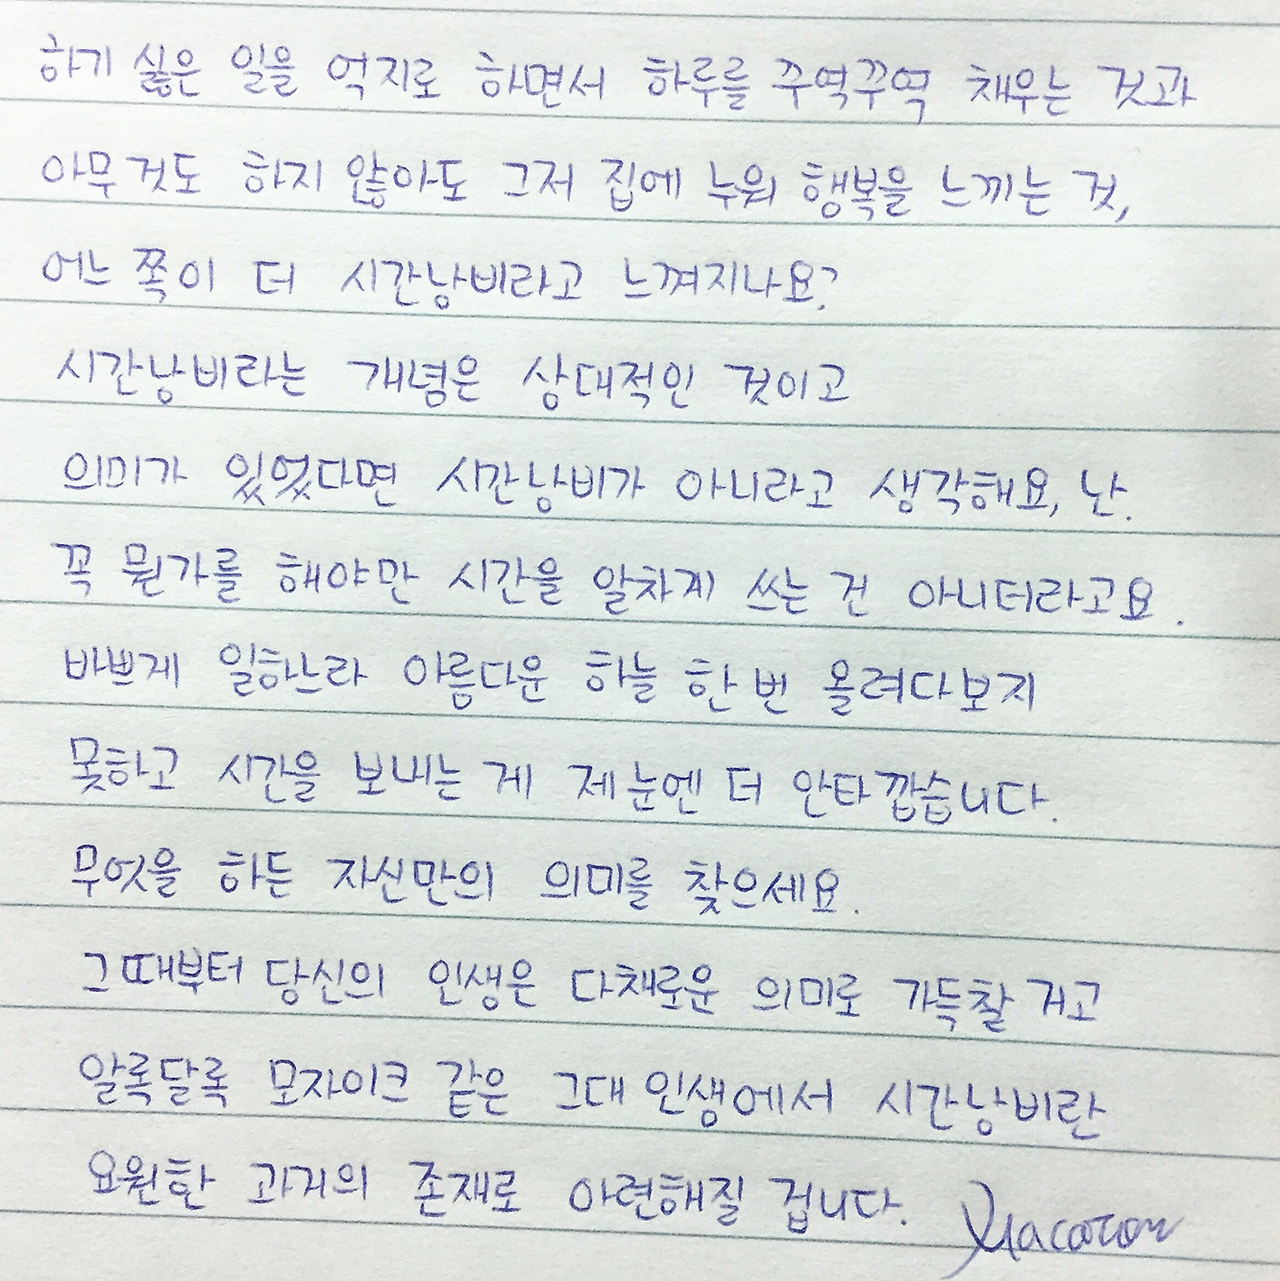 하기 싫은 일을 억지로 하면서 하루를 꾸역꾸역 채우는 것과
아무것도 하지 않아도 그저 집에 누워 행복을 느끼는 것,
어느 쪽이 더 시간낭비라고 느껴지나요?
시간낭비라는 개념은 상대적인 것이고
의미가 있었다면 시간낭비가 아니라고 생각해요, 난.
꼭 뭔가를 해야만 시간을 알차게 쓰는 건 아니더라고요.
바쁘게 일하느라 아름다운 하늘 한 번 올려다보지
못하고 시간을 보내는 게 제 눈엔 더 안타깝습니다.
무엇을 하든 자신만의 의미를 찾으세요.
그때부터 당신의 인생은 다채로운 의미로 가득찰 거고
알록달록 모자이크 같은 그대 인생에서 시간낭비란
요원한 과거의 존재로 아련해질 겁니다. Macaron